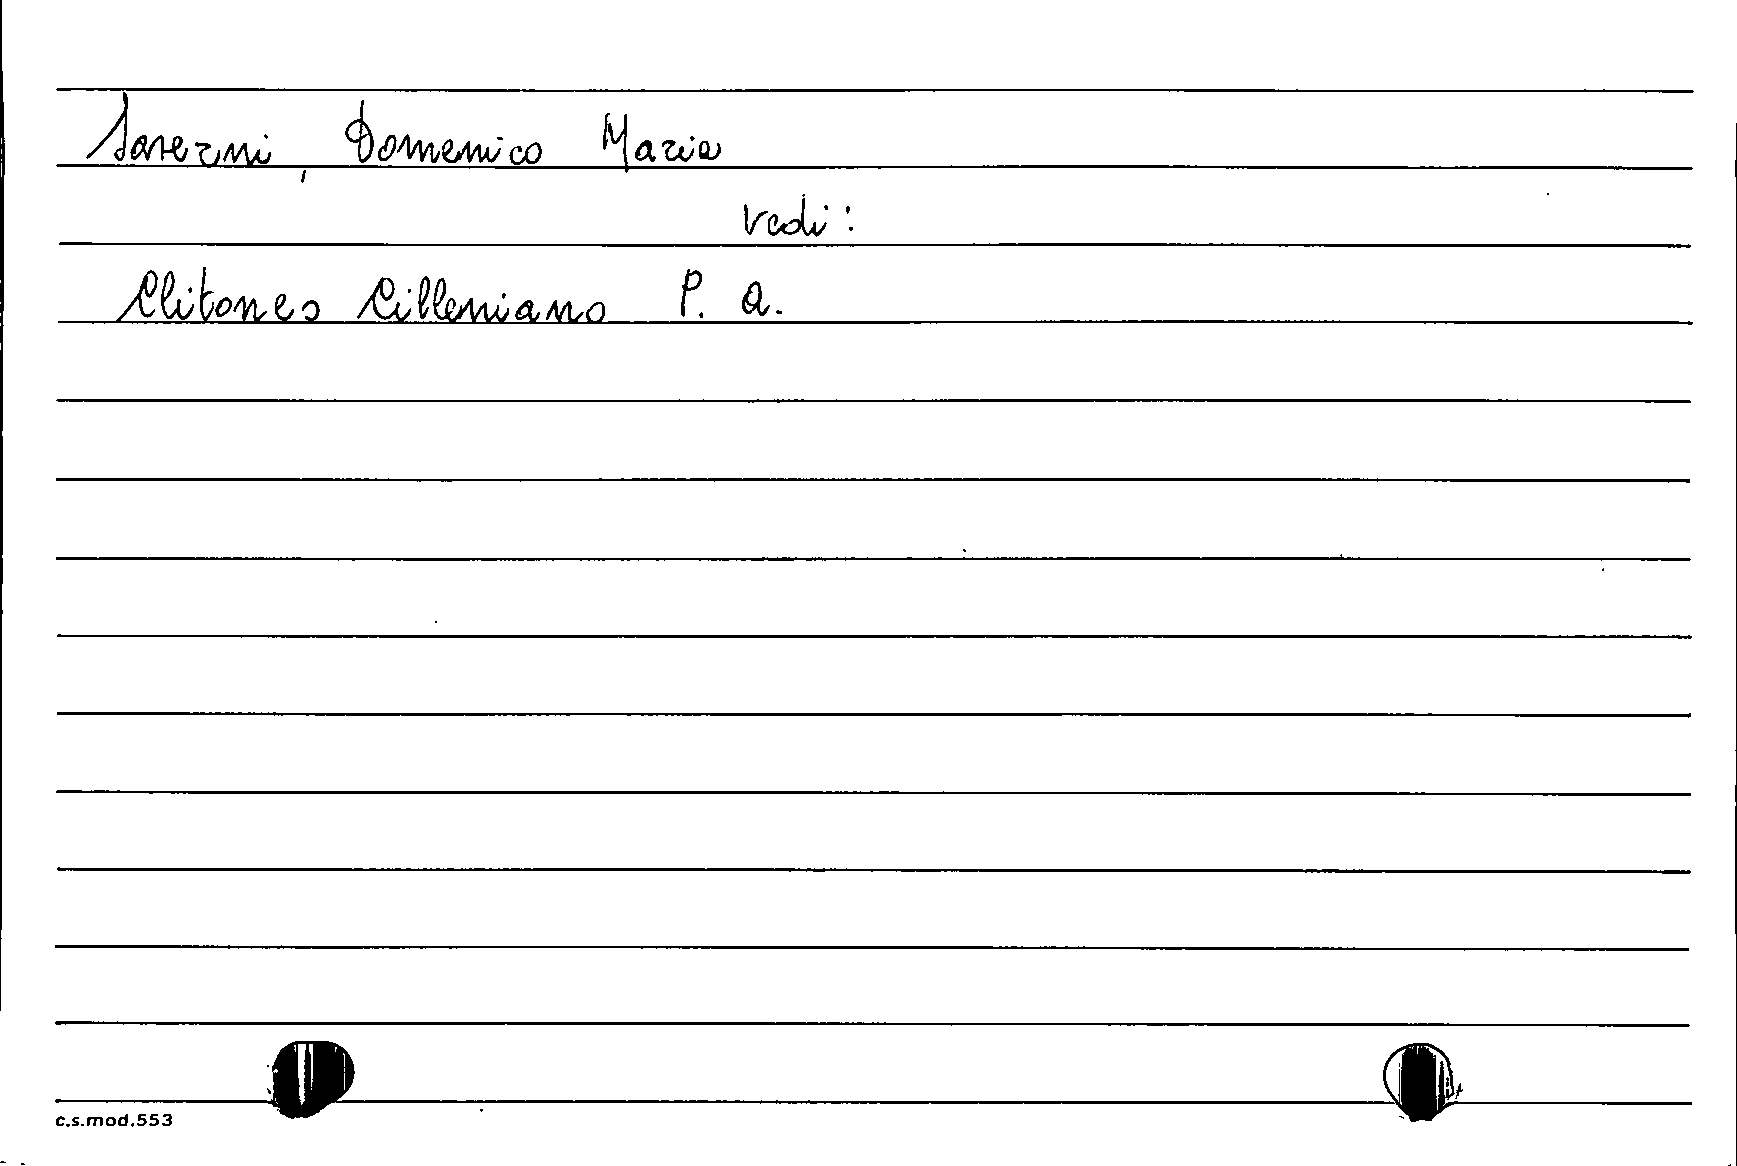 Saverni, Domenico Maria
vedi:
Clitoneo Cilleniano P. A.
c.s.mod.553